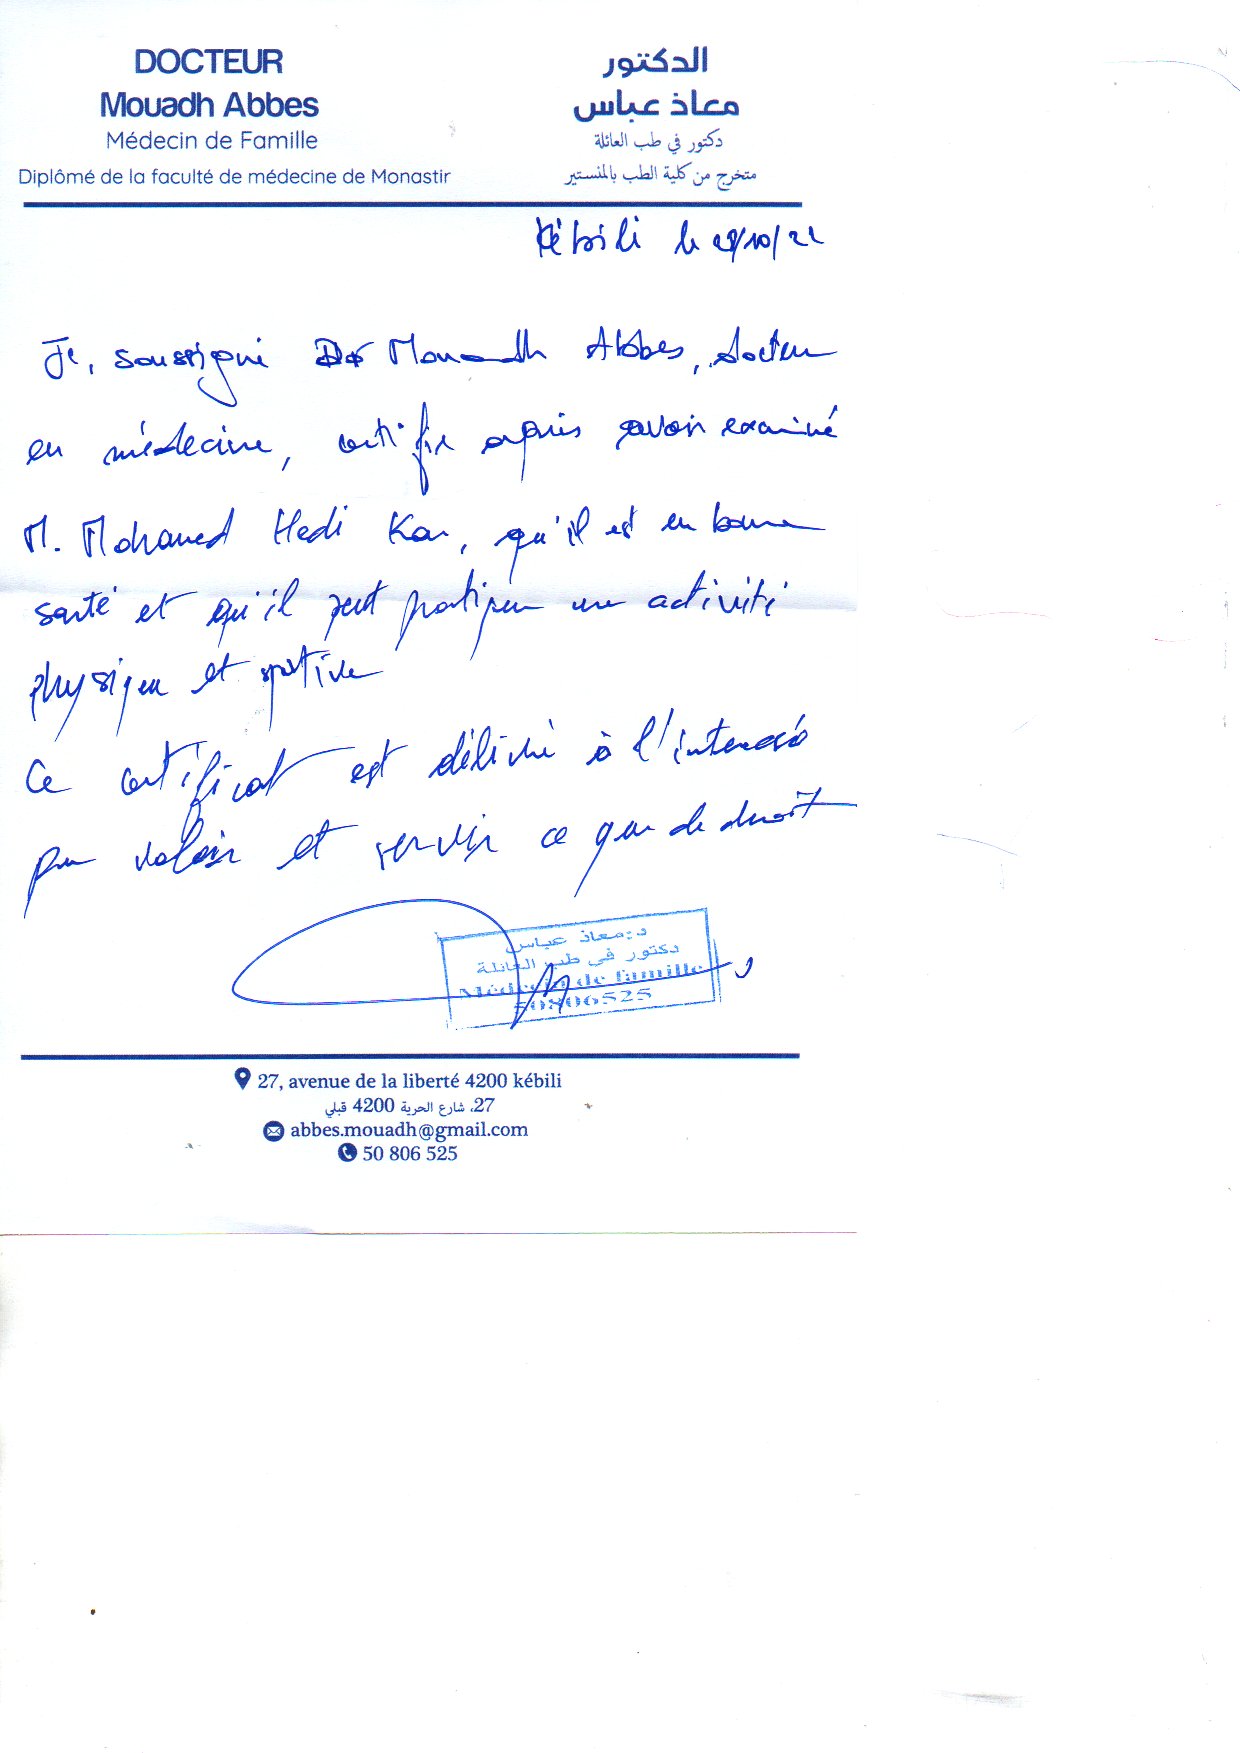 DOCTEUR
Mouadh Abbes
Médecin de Famille
Diplômé de la faculté de médecine de Monastir
الدكتور
معاذ عباس
دكتور في طب العائلة
متخرج من كلية الطب بالمنستير
Kébili le /10/22
Je, soussigné Dr Mouadh Abbes, docteur
en médecine, certifie après avoir examiné
M. Mohamed Hedi, qu'il est en bonne
santé et qu'il peut pratiquer une activité
physique et sportive
Ce certificat est délivré à l'intéressé
pour valoir et servir ce que de droit
د. معاذ عباس
دكتور في طب العائلة
Médecin de famille
50806525
27, avenue de la liberté 4200 kébili
27، شارع الحرية 4200 قبلي
abbes.mouadh@gmail.com
50 806 525